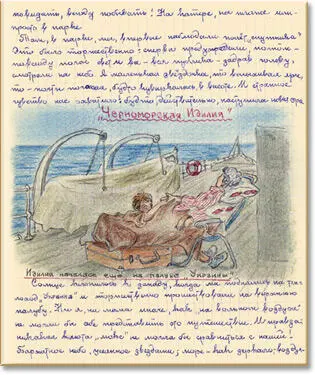 повидать, всюду побывать! На катере, на пляже или
просто в парке.
Там, в парке, мы впервые наблюдали полёт спутника!
Это было торжественно: сперва предупредили, потом
повсюду погас свет и вся публика задрав голову,
смотрела на небо. А маленькая звёздочка, то вспыхивая ярче,
то почти погасая, будто кувыркалась в высоте. И странное
чувство нас охватило: будто действительно, наступила новая эра.
„Черноморская Идиллия"
Идиллия началась ещё на палубе „Украины"
Солнце клонилось к закату, когда мы поднялись на теплоход
„Украина" и торжественно прошествовали на верхнюю
палубу. Ни я, ни мама иначе, как „на вольном воздухе"
не могли бы себе представить это путешествие. И правда:
никакая каюта „люкс" не могла бы сравниться с нашей!
Бархатное небо, усеянное звёздами; море – как зеркало; воздух –